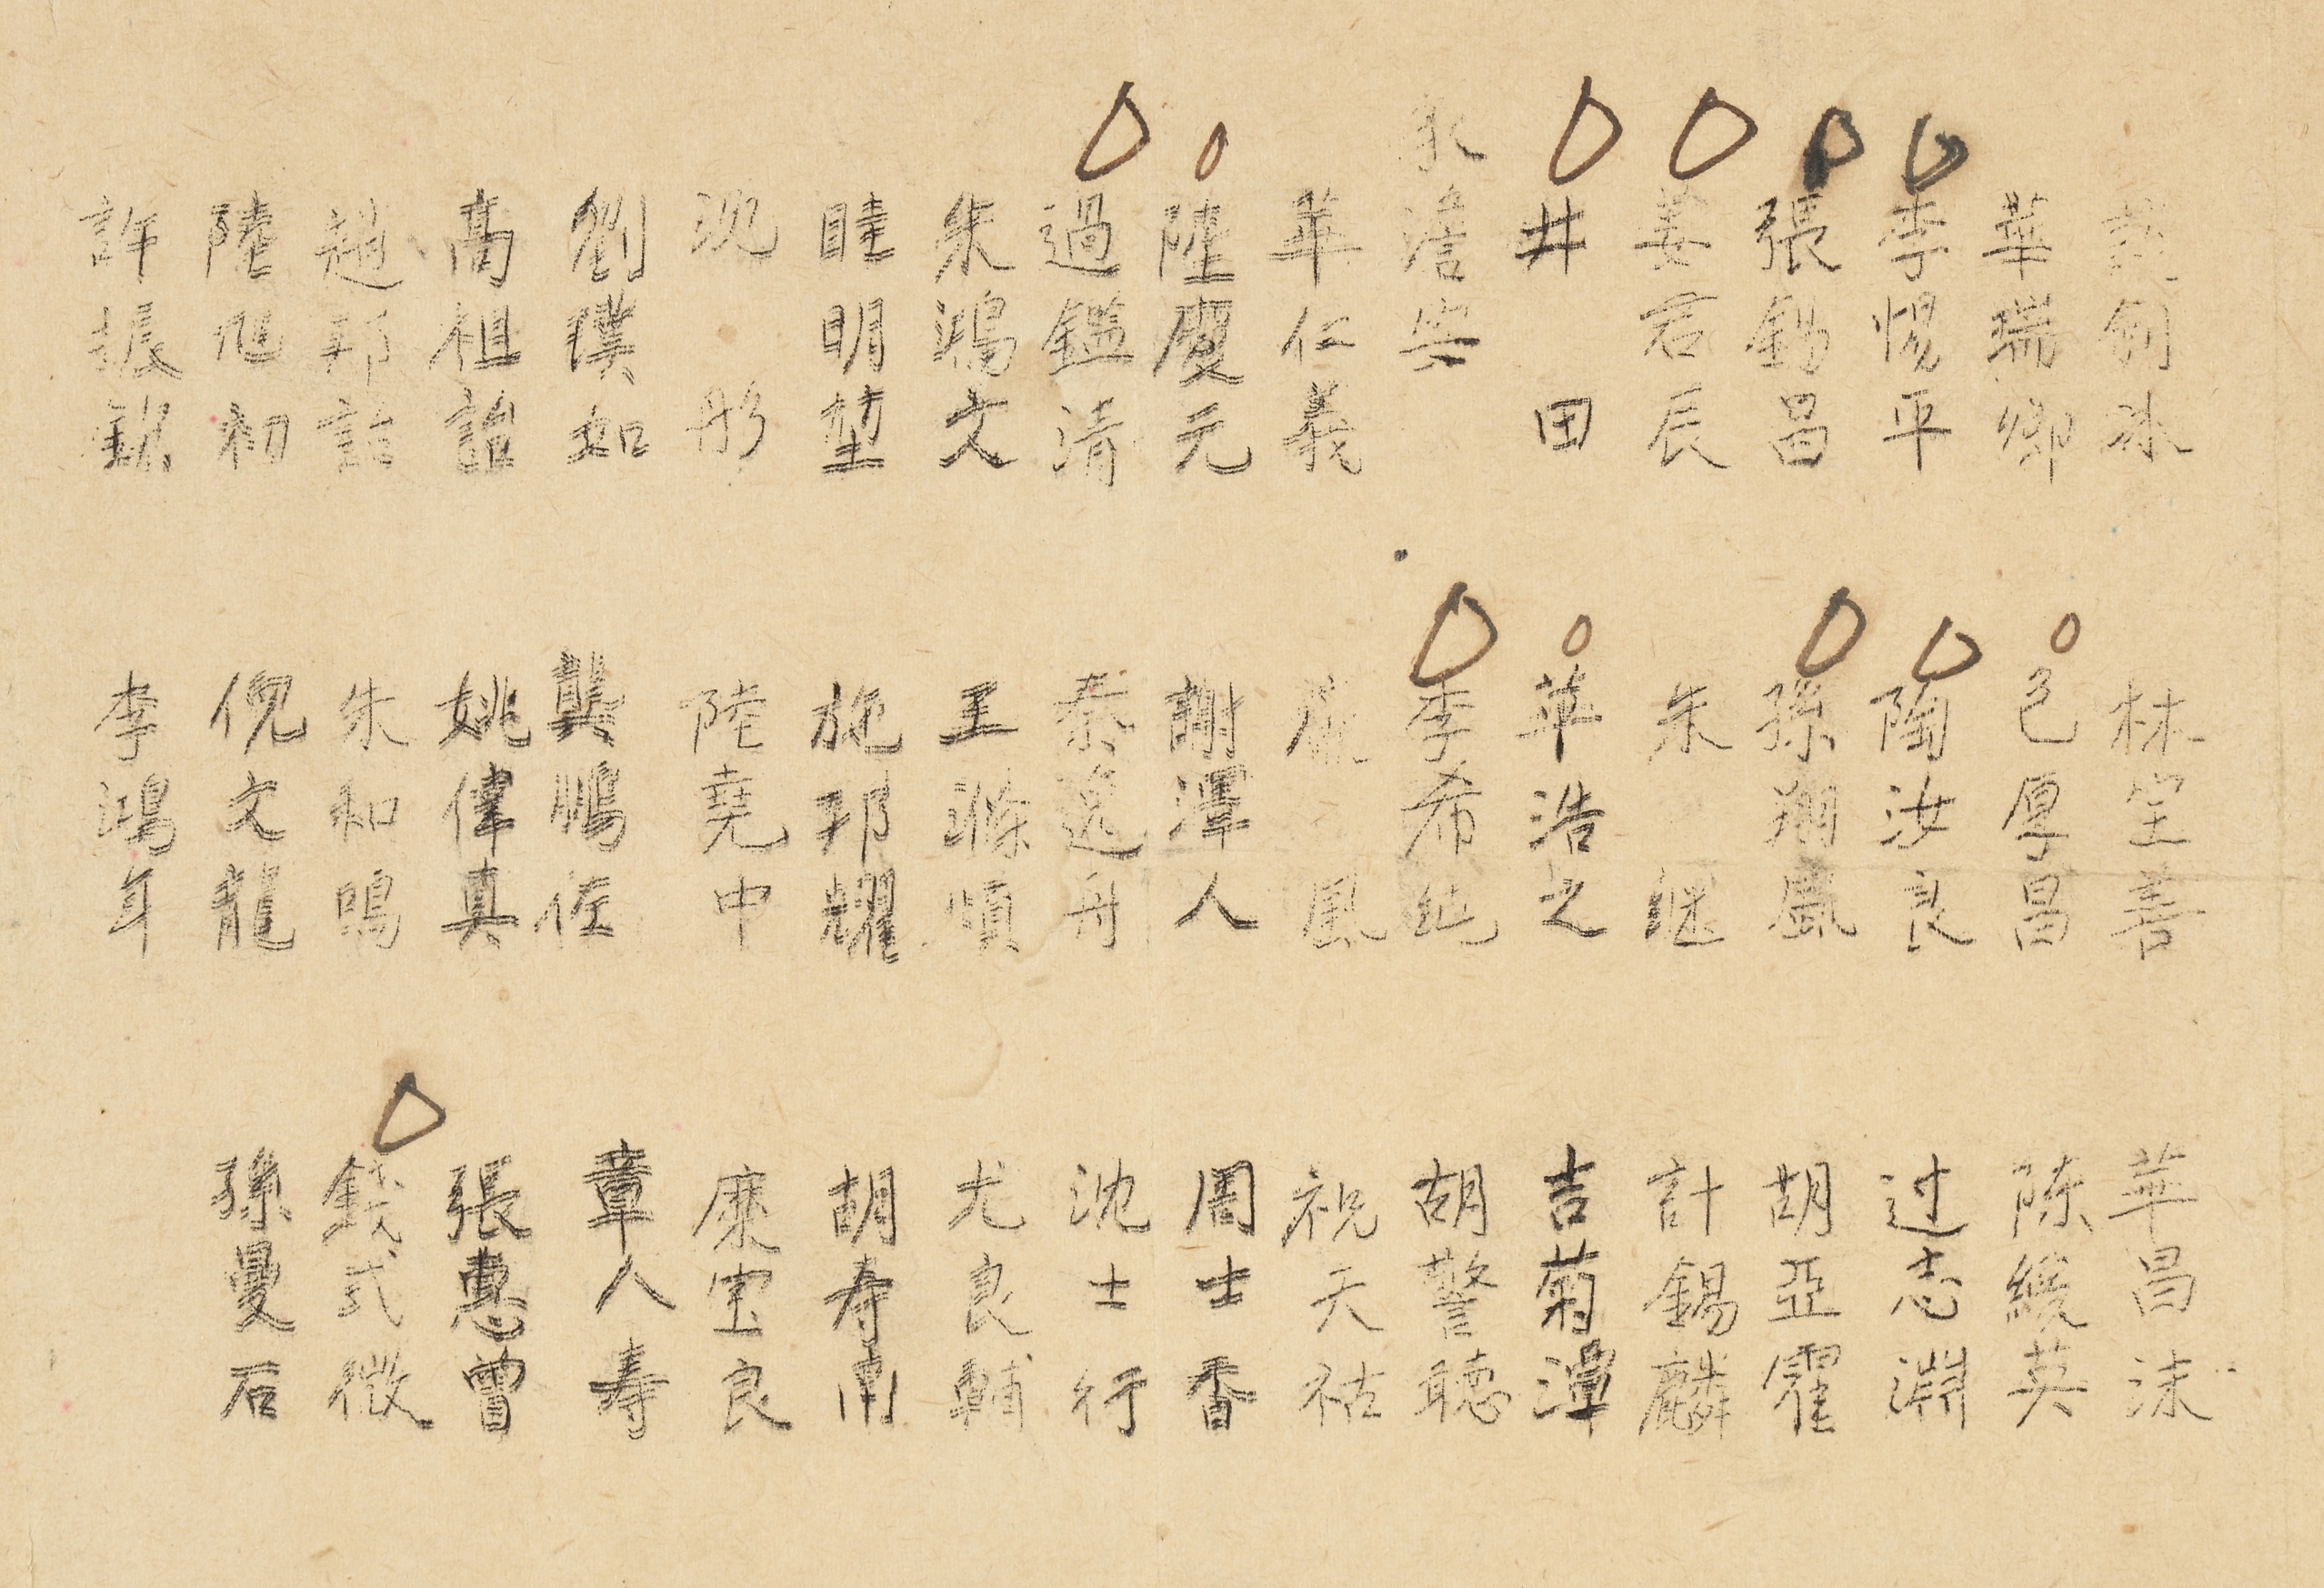 華瑞卿
李惕平
張錫昌
姜君辰
井田
華仁義
陸慶元
過鑑清
朱鴻文
眭明堃
沈彤
劉璞如
高祖詒
趙邦詒
陸旭初
許振欽
林宝善
包厚昌
陶汝良
孫翔鳳
朱继
華浩之
李希純
龐鳳
謝澤人
秦逸舟
王滌煩
施邦耀
陸堯中
龔鵬佐
姚偉真
朱和鳴
倪文龍
李鴻年
華昌沫
陈繞英
过志淵
胡亞霍
計錫麟
吉菊潭
胡警聴
祝天祜
周士香
沈士行
尤良輔
胡寿南
廉宝良
章人寿
張惠曾
錢式徵
孫曼石